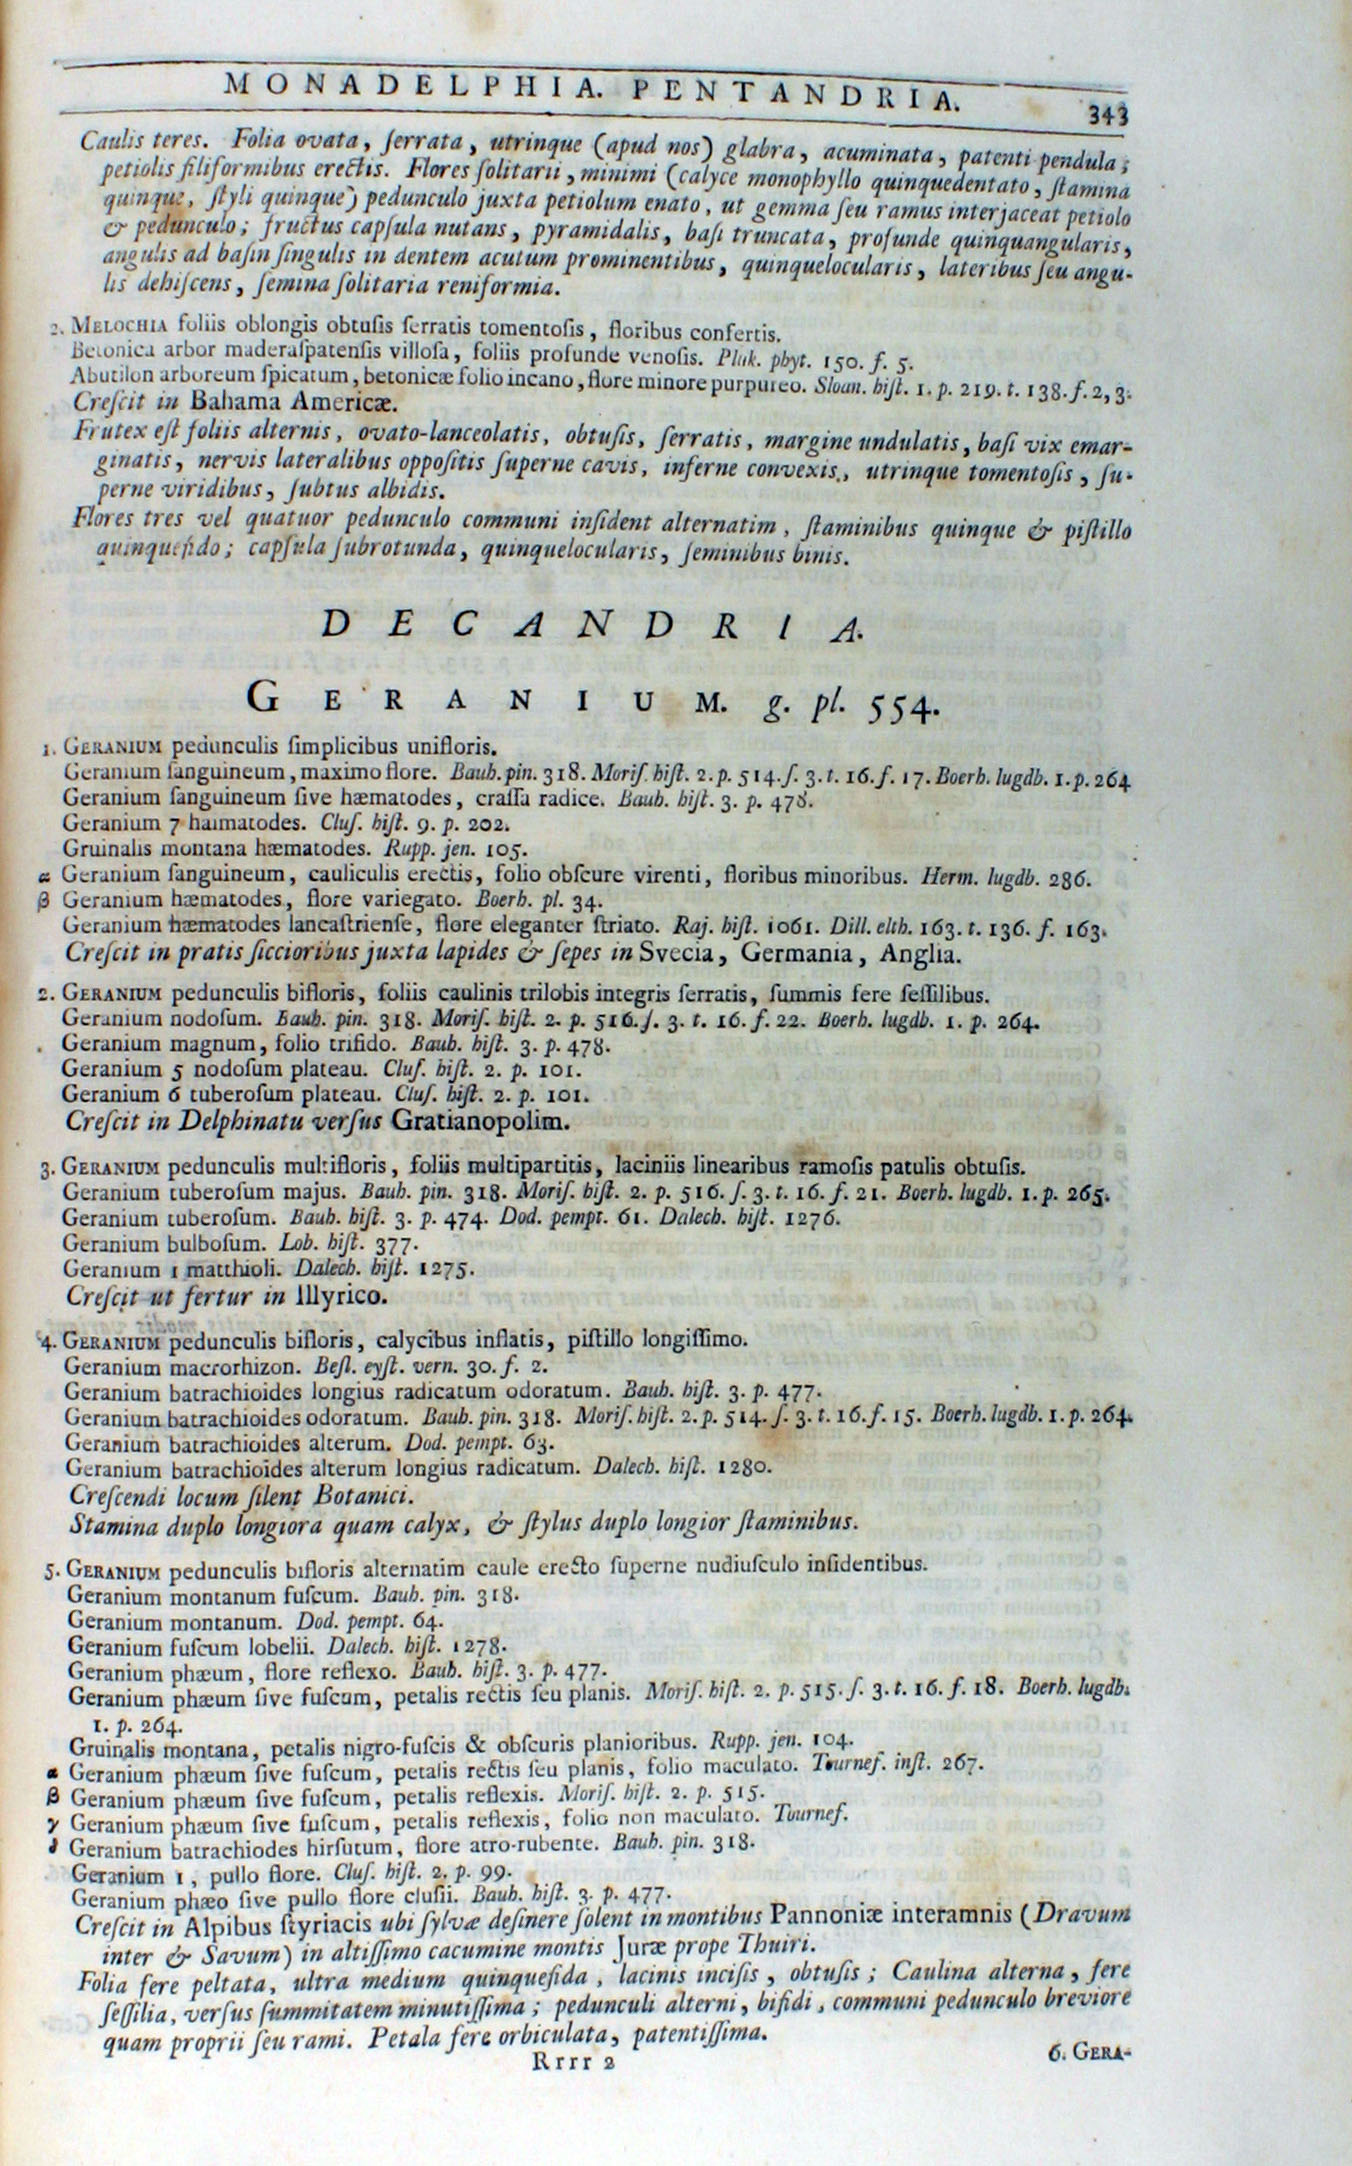 MONADELPHIA. PENTANDRIA. 343
Caulis teres. Folia ovata, ſerrata, utrinque (apud nos) glabra, acuminata, patenti pendula;
petiolis filiformibus erectis. Flores ſolitarii, minimi (calyce monophyllo quinquedentato, ſtamina
quinque, ſtyli quinque) pedunculo juxta petiolum enato, ut gemma ſeu ramus interjaceat petiolo
& pedunculo; fructus capſula nutans, pyramidalis, baſi truncata, profunde quinquangularis,
angulis ad baſin ſingulis in dentem acutum prominentibus, quinquelocularis, lateribus ſeu angu-
lis dehiſcens, ſemina ſolitaria reniformia.
2. MELOCHIA foliis oblongis obtuſis ſerratis tomentoſis, floribus confertis.
Betonica arbor maderaſpatenſis villoſa, foliis profunde venoſis. Pluk. phyt. 150. f. 5.
Abutilon arboreum ſpicatum, betonicæ folio incano, flore minore purpureo. Sloan. hiſt. 1. p. 219. t. 138. f. 2, 3.
Creſcit in Bahama Americæ.
Frutex eſt foliis alternis, ovato-lanceolatis, obtuſis, ſerratis, margine undulatis, baſi vix emar-
ginatis, nervis lateralibus oppoſitis ſuperne cavis, inferne convexis, utrinque tomentoſis, ſu-
perne viridibus, ſubtus albidis.
Flores tres vel quatuor pedunculo communi inſident alternatim, ſtaminibus quinque & piſtillo
quinquefido; capſula ſubrotunda, quinquelocularis, ſeminibus binis.
DECANDRIA.
GERANIUM. g. pl. 554.
1. GERANIUM pedunculis ſimplicibus unifloris.
Geranium ſanguineum, maximo flore. Bauh. pin. 318. Moriſ. hiſt. 2. p. 514. ſ. 3. t. 16. f. 17. Boerh. lugdb. 1. p. 264
Geranium ſanguineum ſive hæmatodes, craſſa radice. Bauh. hiſt. 3. p. 478.
Geranium 7 haimatodes. Cluſ. hiſt. 9. p. 202.
Gruinalis montana hæmatodes. Rupp. jen. 105.
α Geranium ſanguineum, cauliculis erectis, folio obſcure virenti, floribus minoribus. Herm. lugdb. 286.
β Geranium hæmatodes, flore variegato. Boerh. pl. 34.
Geranium hæmatodes lancaſtrienſe, flore eleganter ſtriato. Raj. hiſt. 1061. Dill. elth. 163. t. 136. f. 163.
Creſcit in pratis ſiccioribus juxta lapides & ſepes in Svecia, Germania, Anglia.
2. GERANIUM pedunculis bifloris, foliis caulinis trilobis integris ſerratis, ſummis fere ſeſſilibus.
Geranium nodoſum. Bauh. pin. 318. Moriſ. hiſt. 2. p. 516. ſ. 3. t. 16. f. 22. Boerh. lugdb. 1. p. 264.
Geranium magnum, folio trifido. Bauh. hiſt. 3. p. 478.
Geranium 5 nodoſum plateau. Cluſ. hiſt. 2. p. 101.
Geranium 6 tuberoſum plateau. Cluſ. hiſt. 2. p. 101.
Creſcit in Delphinatu verſus Gratianopolim.
3. GERANIUM pedunculis multifloris, foliis multipartitis, laciniis linearibus ramoſis patulis obtuſis.
Geranium tuberoſum majus. Bauh. pin. 318. Moriſ. hiſt. 2. p. 516. ſ. 3. t. 16. f. 21. Boerh. lugdb. 1. p. 265.
Geranium tuberoſum. Bauh. hiſt. 3. p. 474. Dod. pempt. 61. Dalech. hiſt. 1276.
Geranium bulboſum. Lob. hiſt. 377.
Geranium 1 matthioli. Dalech. hiſt. 1275.
Creſcit ut fertur in Illyrico.
4. GERANIUM pedunculis bifloris, calycibus inflatis, piſtillo longiſſimo.
Geranium macrorhizon. Beſl. eyſt. vern. 30. f. 2.
Geranium batrachioides longius radicatum odoratum. Bauh. hiſt. 3. p. 477.
Geranium batrachioides odoratum. Bauh. pin. 318. Moriſ. hiſt. 2. p. 514. ſ. 3. t. 16. f. 15. Boerh. lugdb. 1. p. 264.
Geranium batrachioides alterum. Dod. pempt. 63.
Geranium batrachioides alterum longius radicatum. Dalech. hiſt. 1280.
Creſcendi locum ſilent Botanici.
Stamina duplo longiora quam calyx, & ſtylus duplo longior ſtaminibus.
5. GERANIUM pedunculis bifloris alternatim caule erecto ſuperne nudiuſculo inſidentibus.
Geranium montanum fuſcum. Bauh. pin. 318.
Geranium montanum. Dod. pempt. 64.
Geranium fuſcum lobelii. Dalech. hiſt. 1278.
Geranium phæum, flore reflexo. Bauh. hiſt. 3. p. 477.
Geranium phæum ſive fuſcum, petalis rectis ſeu planis. Moriſ. hiſt. 2. p. 515. ſ. 3. t. 16. f. 18. Boerh. lugdb.
1. p. 264.
Gruinalis montana, petalis nigro-fuſcis & obſcuris planioribus. Rupp. jen. 104.
α Geranium phæum ſive fuſcum, petalis rectis ſeu planis, folio maculato. Tournef. inſt. 267.
β Geranium phæum ſive fuſcum, petalis reflexis. Moriſ. hiſt. 2. p. 515.
γ Geranium phæum ſive fuſcum, petalis reflexis, folio non maculato. Tournef.
δ Geranium batrachiodes hirſutum, flore atro-rubente. Bauh. pin. 318.
Geranium 1, pullo flore. Cluſ. hiſt. 2. p. 99.
Geranium phæo ſive pullo flore cluſii. Bauh. hiſt. 3. p. 477.
Creſcit in Alpibus ſtyriacis ubi ſylvæ deſinere ſolent in montibus Pannoniæ interamnis (Dravum
inter & Savum) in altiſſimo cacumine montis Juræ prope Thuiri.
Folia fere peltata, ultra medium quinquefida, lacinis inciſis, obtuſis; Caulina alterna, fere
ſeſſilia, verſus ſummitatem minutiſſima; pedunculi alterni, bifidi, communi pedunculo breviore
quam proprii ſeu rami. Petala fere orbiculata, patentiſſima.
Rrrr 2 6. GERA-